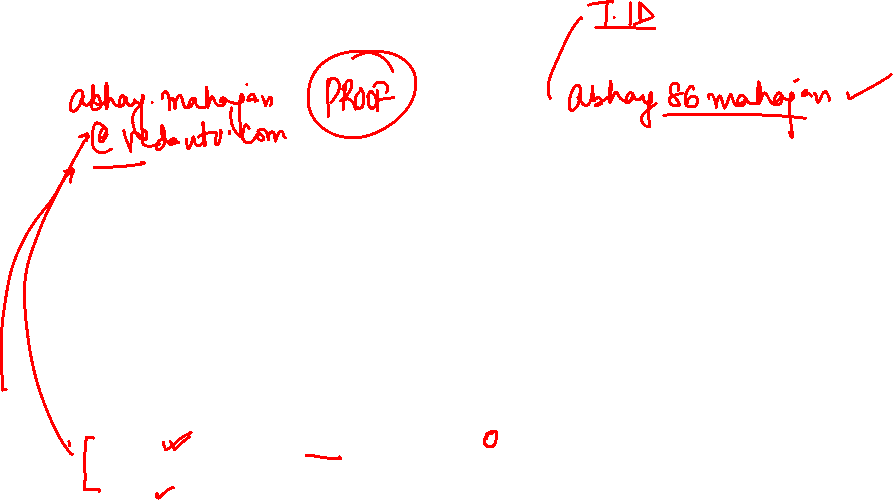 T.ID
abhay.mahajan
@vedantu.com
PROOF
abhay86mahajan